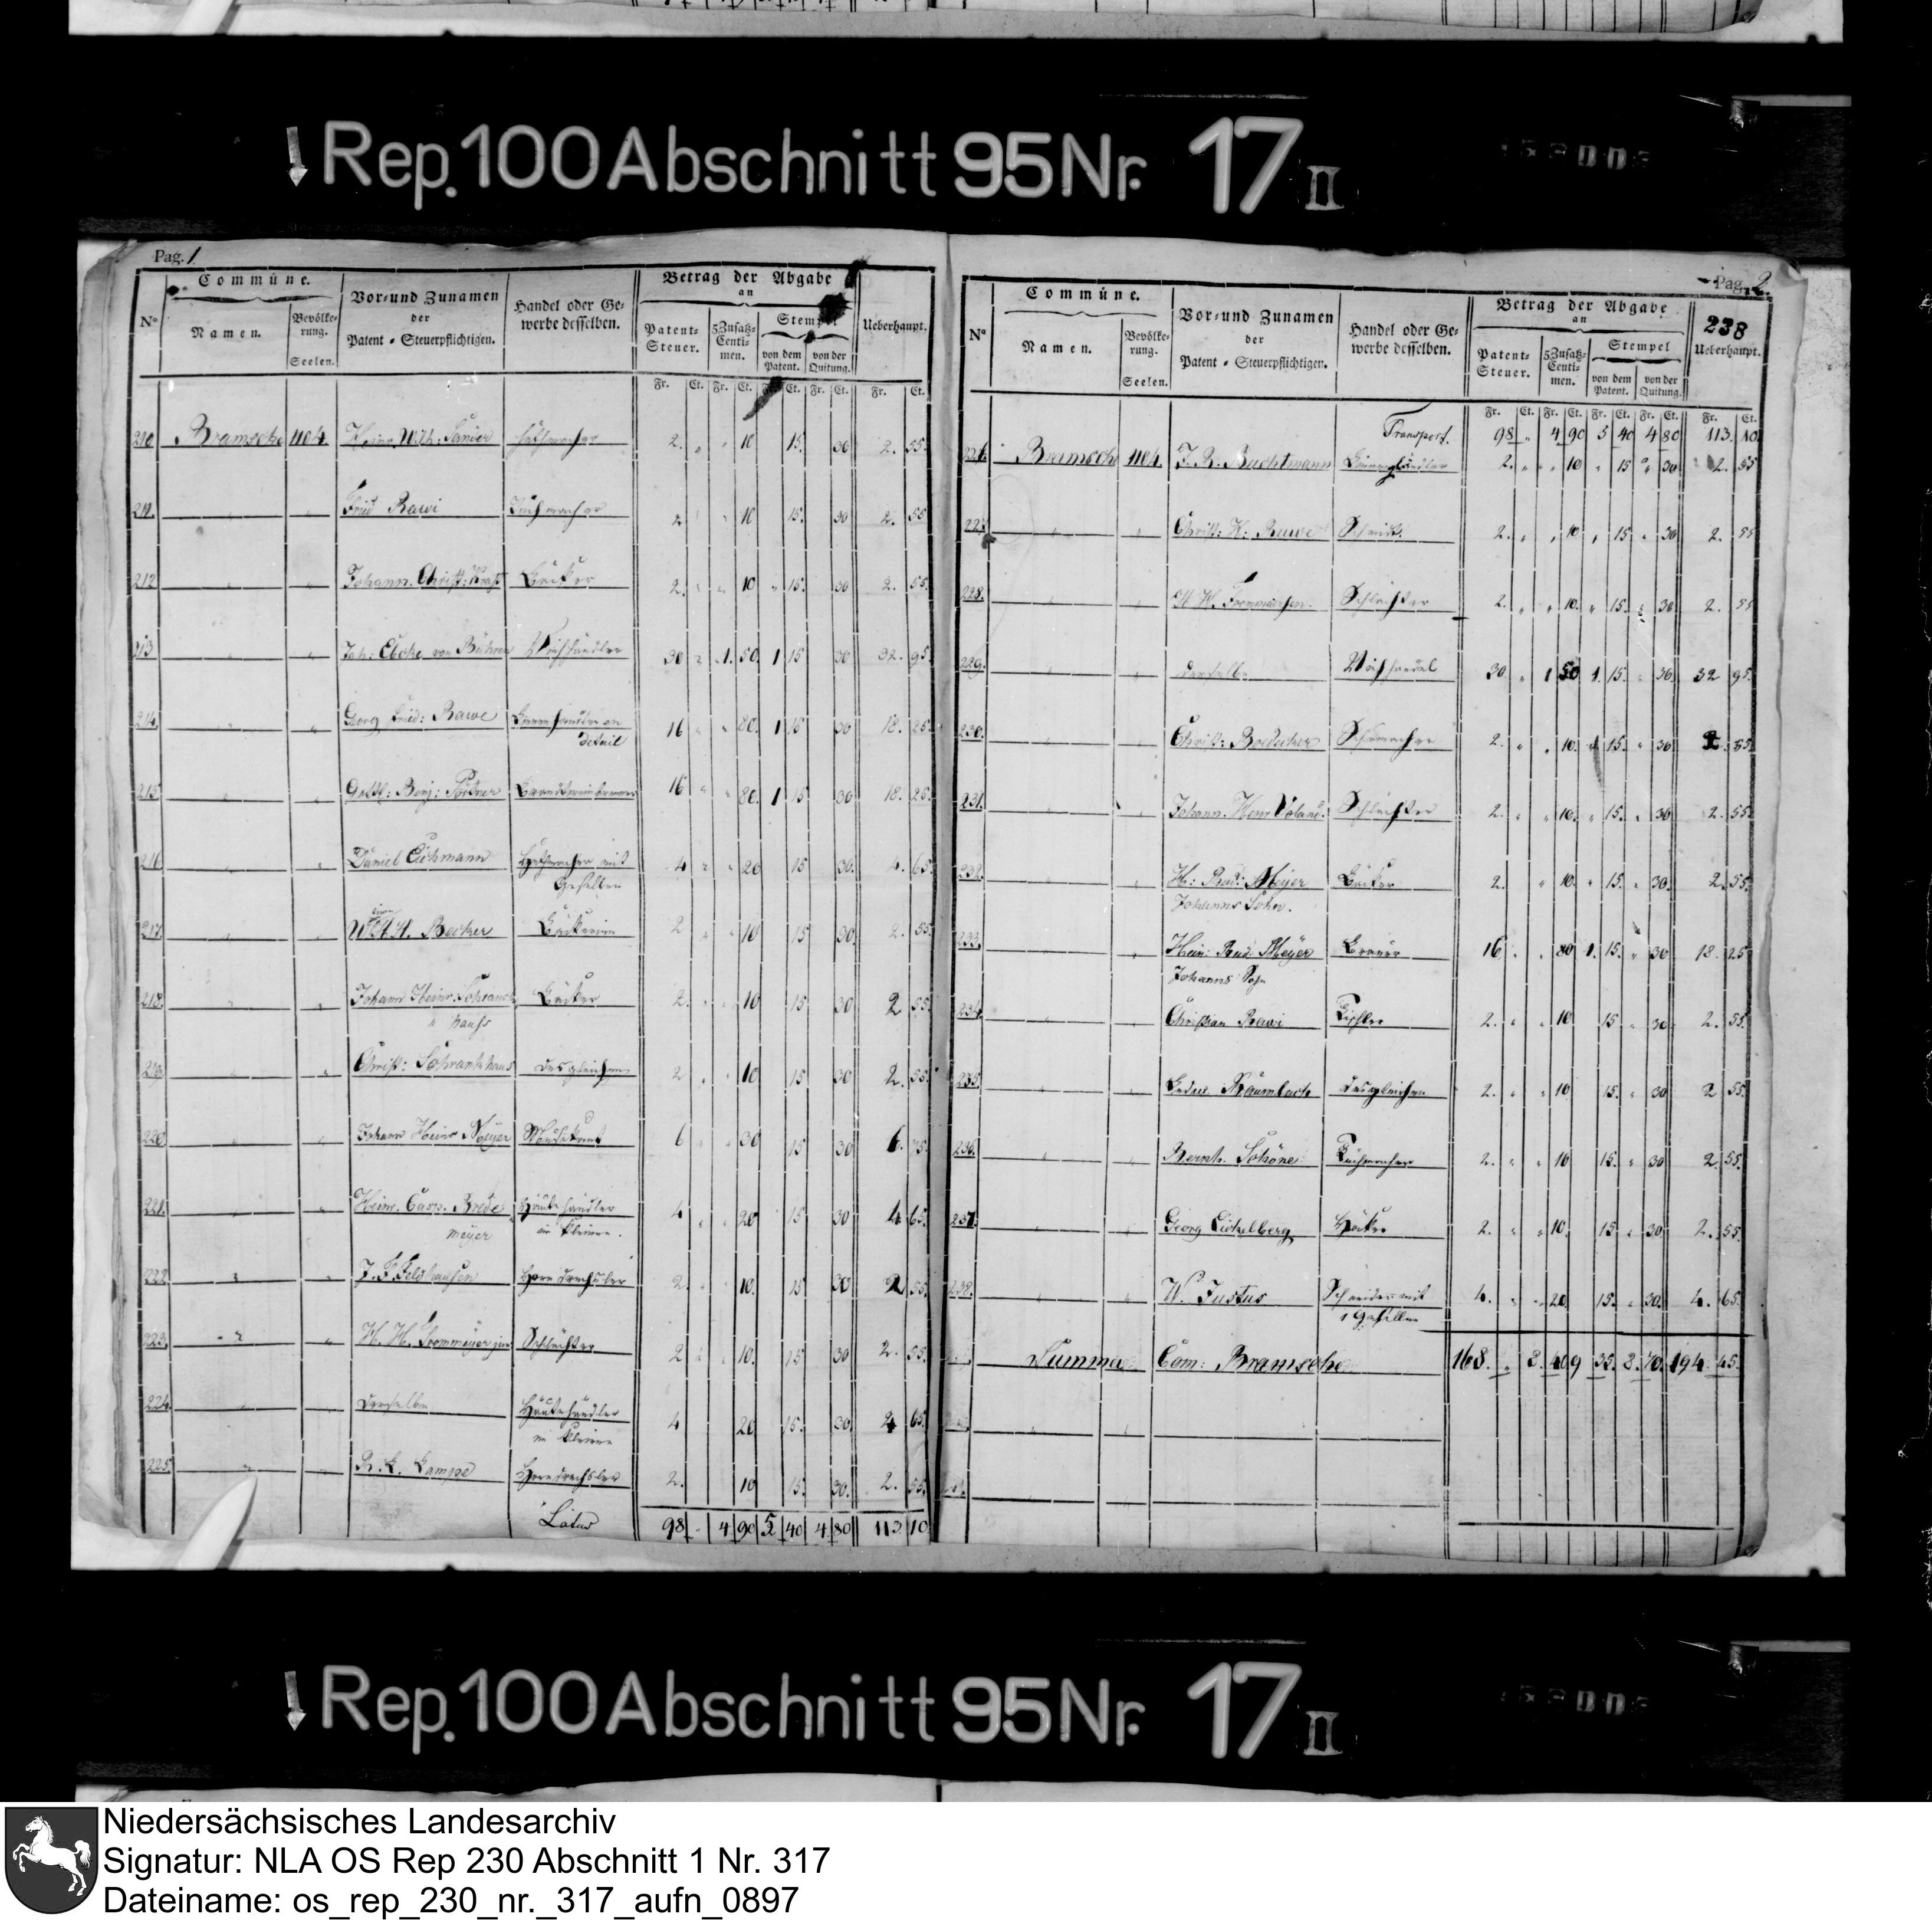 Rep. 100 Abschnitt 95 Nr. 17 II
Pag. 1
Commüne. Vor- und Zunamen der Patent-Steuerpflichtigen. Handel oder Gewerbe desselben. Betrag der Abgabe an Ueberhaupt.
No Namen. Bevölkerung. Seelen. Patent-Steuer. 5 Zusatz-Centimen. Stempel von dem Patent. von der Quitung.
Fr. Ct. Fr. Ct. Fr. Ct. Fr. Ct. Fr. Ct.
210. Bramsche 1104. Heinr. Wilh: 2. " " 10 15. 30 2. 55.
211. " " Fried Rawi Tuchmacher 2. " 10 15. 30 2. 55
212 " " Johann Christ: Bäcker 2. " " 10 " 15. 30 2. 55.
213 " " Joh: von Bühren Viehhändler 30 " 1. 50. 1 15 30 32. 95.
214. " " Georg Fried: Rawe en detail 16 " " 80. 1 15 30 18. 25.
215. " " Gottl: Benj: 16 " " 80. 1 15 30 18. 25.
216 " " Daniel Eichmann mit Gesellen 4 " " 20 15 30. 4. 65.
217. " " Becker Bäckerin 2 " " 10 15 30. 2. 55.
218. " " Johann Heinr. Bäcker 2. " " 10 15. 30 2 55.
219. " " Christ: Schrankhaus desgleichen 2 " " 10 15 30 2. 55.
220 " " Johann Heinr. Meyer Musikant 6 " " 30 15 30 6. 45.
221. " " Heinr. Casp. Bredemeyer Häutehändler im Kleinen. 4 " 20 15 30 4. 65.
222. " " J. F. Feldhausen 2. " 10. 15 30 2 55.
223. " " H. H. jun Schlächter 2 " 10. 15 30 2. 55.
224. " " Derselbe Häutehändler im Kleinen 4 20 15. 30 4 65.
225. " " R. L. Lampe 2. 10 15. 30. 2. 55.
Latus 98 " 4 90 5 40 4 80 113 10
Pag. 2.
238
Commüne. Vor- und Zunamen der Patent-Steuerpflichtigen. Handel oder Gewerbe desselben. Betrag der Abgabe an Ueberhaupt.
No Namen. Bevölkerung. Seelen. Patent-Steuer. 5 Zusatz-Centimen. Stempel von dem Patent. von der Quitung.
Fr. Ct. Fr. Ct. Fr. Ct. Fr. Ct. Fr. Ct.
Transport. 98 " 4 90 5 40 4 80 113. 10.
226. Bramsche 1104. J. R. Bachtmann 2. " " 10 " 15 " 30 2. 55
227. " " Christ: H: Rawe Schmidt. 2. " " 10 " 15. " 30 2. 55
228. " " Schlächter 2. " " 10. " 15. " 30 2. 55
229. " " derselbe Viehhandel 30. " 1 50 1. 15. " 30. 32 95.
230. " " Christ: Boedecker 2. " " 10. 15. " 30 2. 55.
231. " " Johann Heinr Schlächter 2. " " 10. " 15. " 30 2. 55.
232. " " H: Rud: Meyer Johanns Sohn. Bäcker 2. " 10. " 15. " 30. 2. 55.
233. " Hein: Rud: Meyer Johanns Sohn Brauer 16 " " 80 1. 15. " 30 18. 25.
234. " " Christian Rawi Tischler 2. " " 10 15 " 30 2. 55.
235. " " Baumbach desgleichen 2. " " 10 15. " 30 2 55.
236. " " Bernh. Schöne Tuchmacher 2. " " 10 15. " 30 2. 55.
237. " " Georg Eichelberg Höcker 2. " " 10. 15 " 30. 2. 55.
238. " " W. Justus Schneider mit 1 Gesellen 4. " " 20. 15. " 30. 4. 65.
Summa Com: Bramsche 168. " 8. 40 9 35. 8. 70. 194. 45.
Rep. 100 Abschnitt 95 Nr. 17 II
Niedersächsisches Landesarchiv
Signatur: NLA OS Rep 230 Abschnitt 1 Nr. 317
Dateiname: os_rep_230_nr._317_aufn_0897